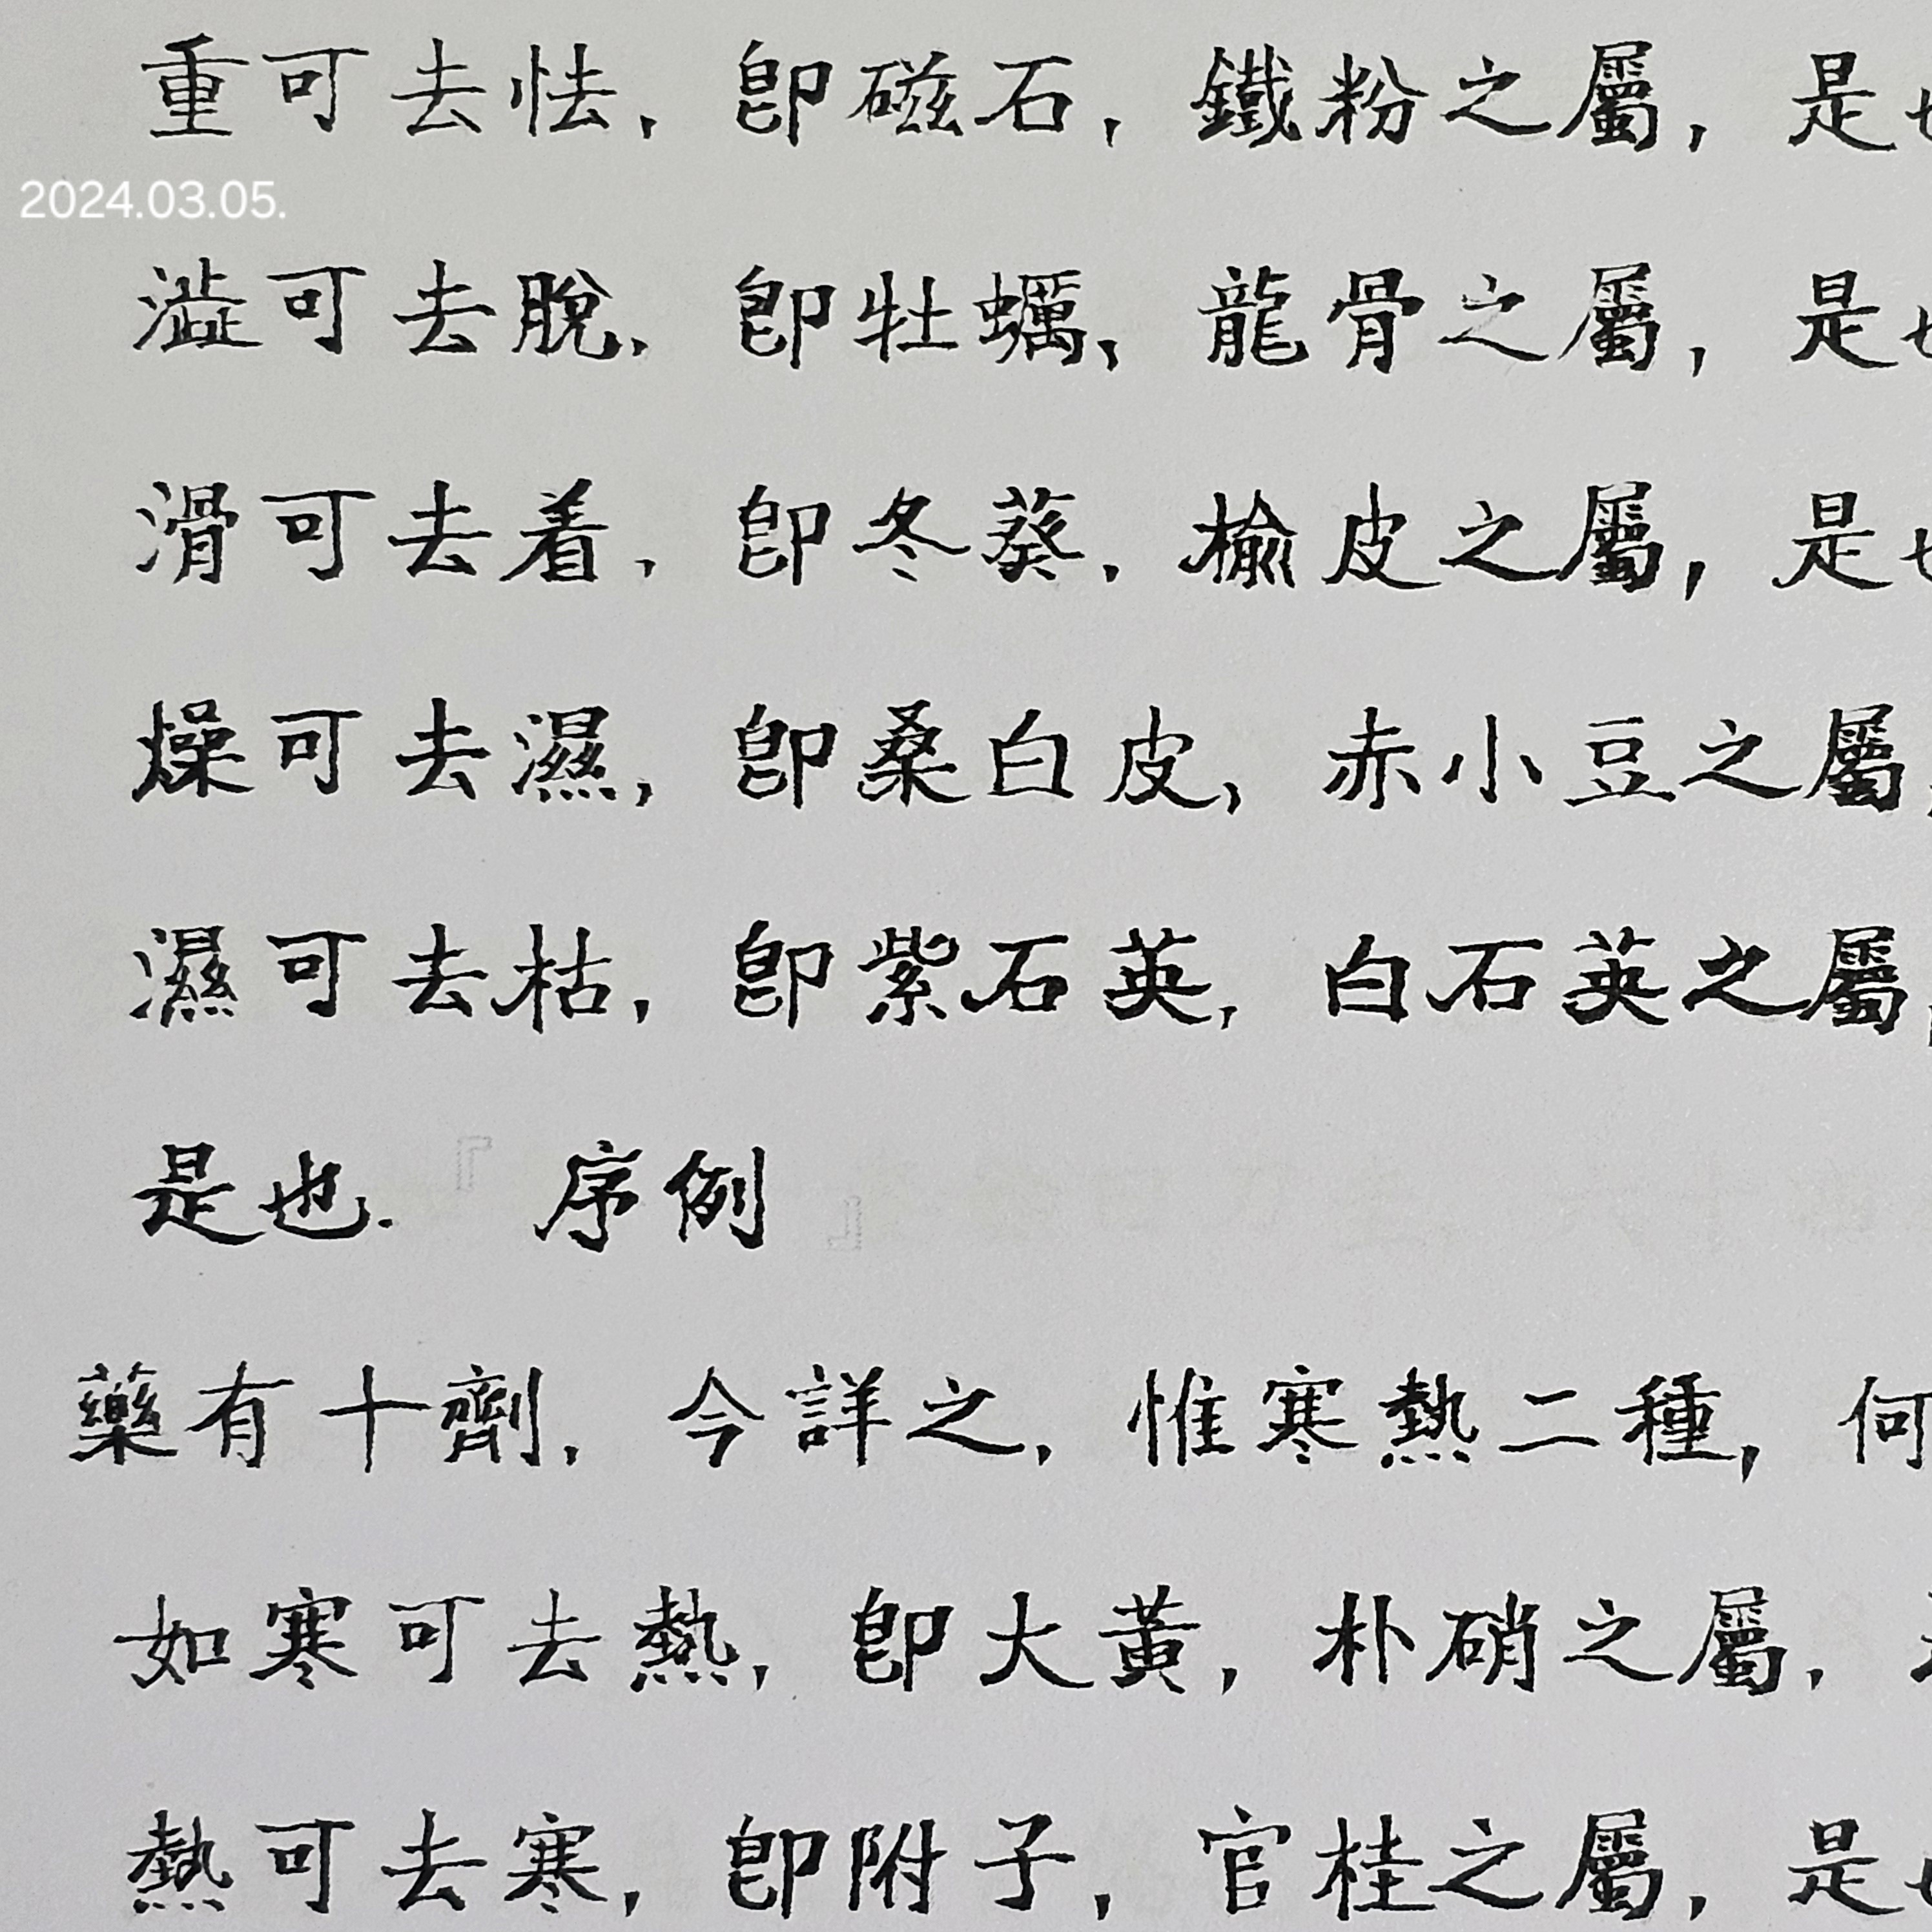 重可去怯, 卽磁石, 鐵粉之屬, 是也
2024.03.05.
澁可去脫, 卽牡蠣, 龍骨之屬, 是也
滑可去着, 卽冬葵, 楡皮之屬, 是也
燥可去濕, 卽桑白皮, 赤小豆之屬,
濕可去枯, 卽紫石英, 白石英之屬,
是也. 序例
藥有十劑, 今詳之, 惟寒熱二種, 何
如寒可去熱, 卽大黃, 朴硝之屬,
熱可去寒, 卽附子, 官桂之屬, 是也